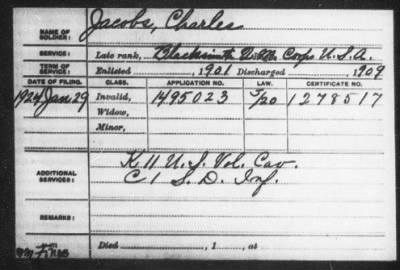 NAME OF SOLDIER: Jacobs, Charles
SERVICE: Late rank, Blacksmith Corps U.S.A.
TERM OF SERVICE: Enlisted 1901 Discharged 1909
DATE OF FILING. CLASS. APPLICATION NO. LAW. CERTIFICATE NO.
1924 Jan. 29 Invalid, 1495023 5/20 1278517
Widow,
Minor,
K 11 U.S. Vol. Cav.
ADDITIONAL SERVICES: C 1 S. D. Inf.
REMARKS:
Died , 1 , at